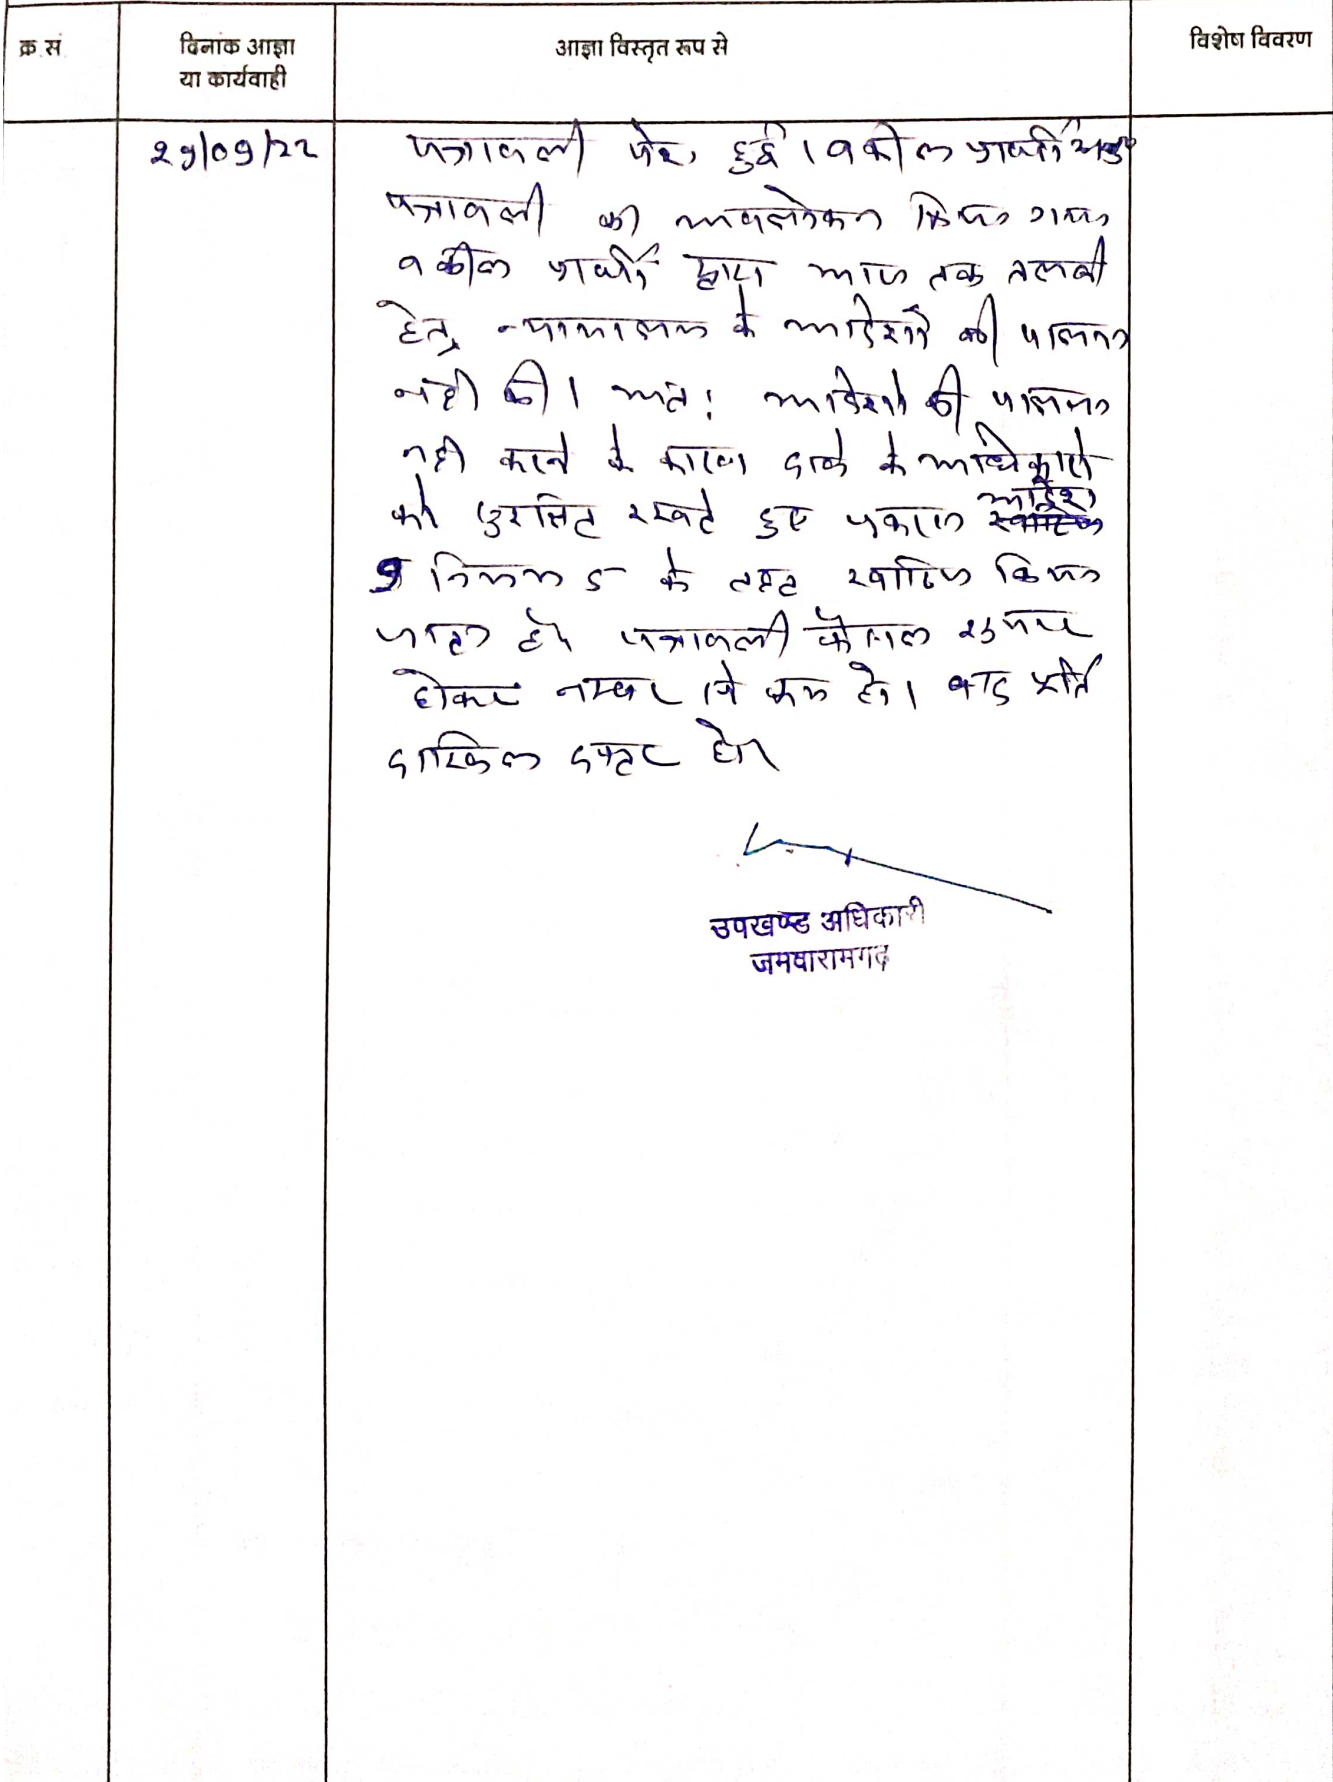 क्र.सं.
दिनांक आज्ञा
या कार्यवाही
आज्ञा विस्तृत रूप से
विशेष विवरण
29/09/22
पत्रावली पेश हुई । वकील प्रार्थी
पत्रावली का अवलोकन किया गया
वकील प्रार्थी द्वारा आज तक तलबी
हेतु न्यायालय के आदेशों की पालना
नही की । अतः आदेशो की पालना
नही करने के कारण दावे के अधिकारो
को सुरक्षित रखते हुए प्रकरण आदेश
9 नियम 5 के तहत खारिज किया
जाता है। पत्रावली फैसल शुमार
होकर नम्बर से कम हो। बाद पूर्ति
दाखिल दफ्तर हो।
उपखण्ड अधिकारी
जमवारामगढ़